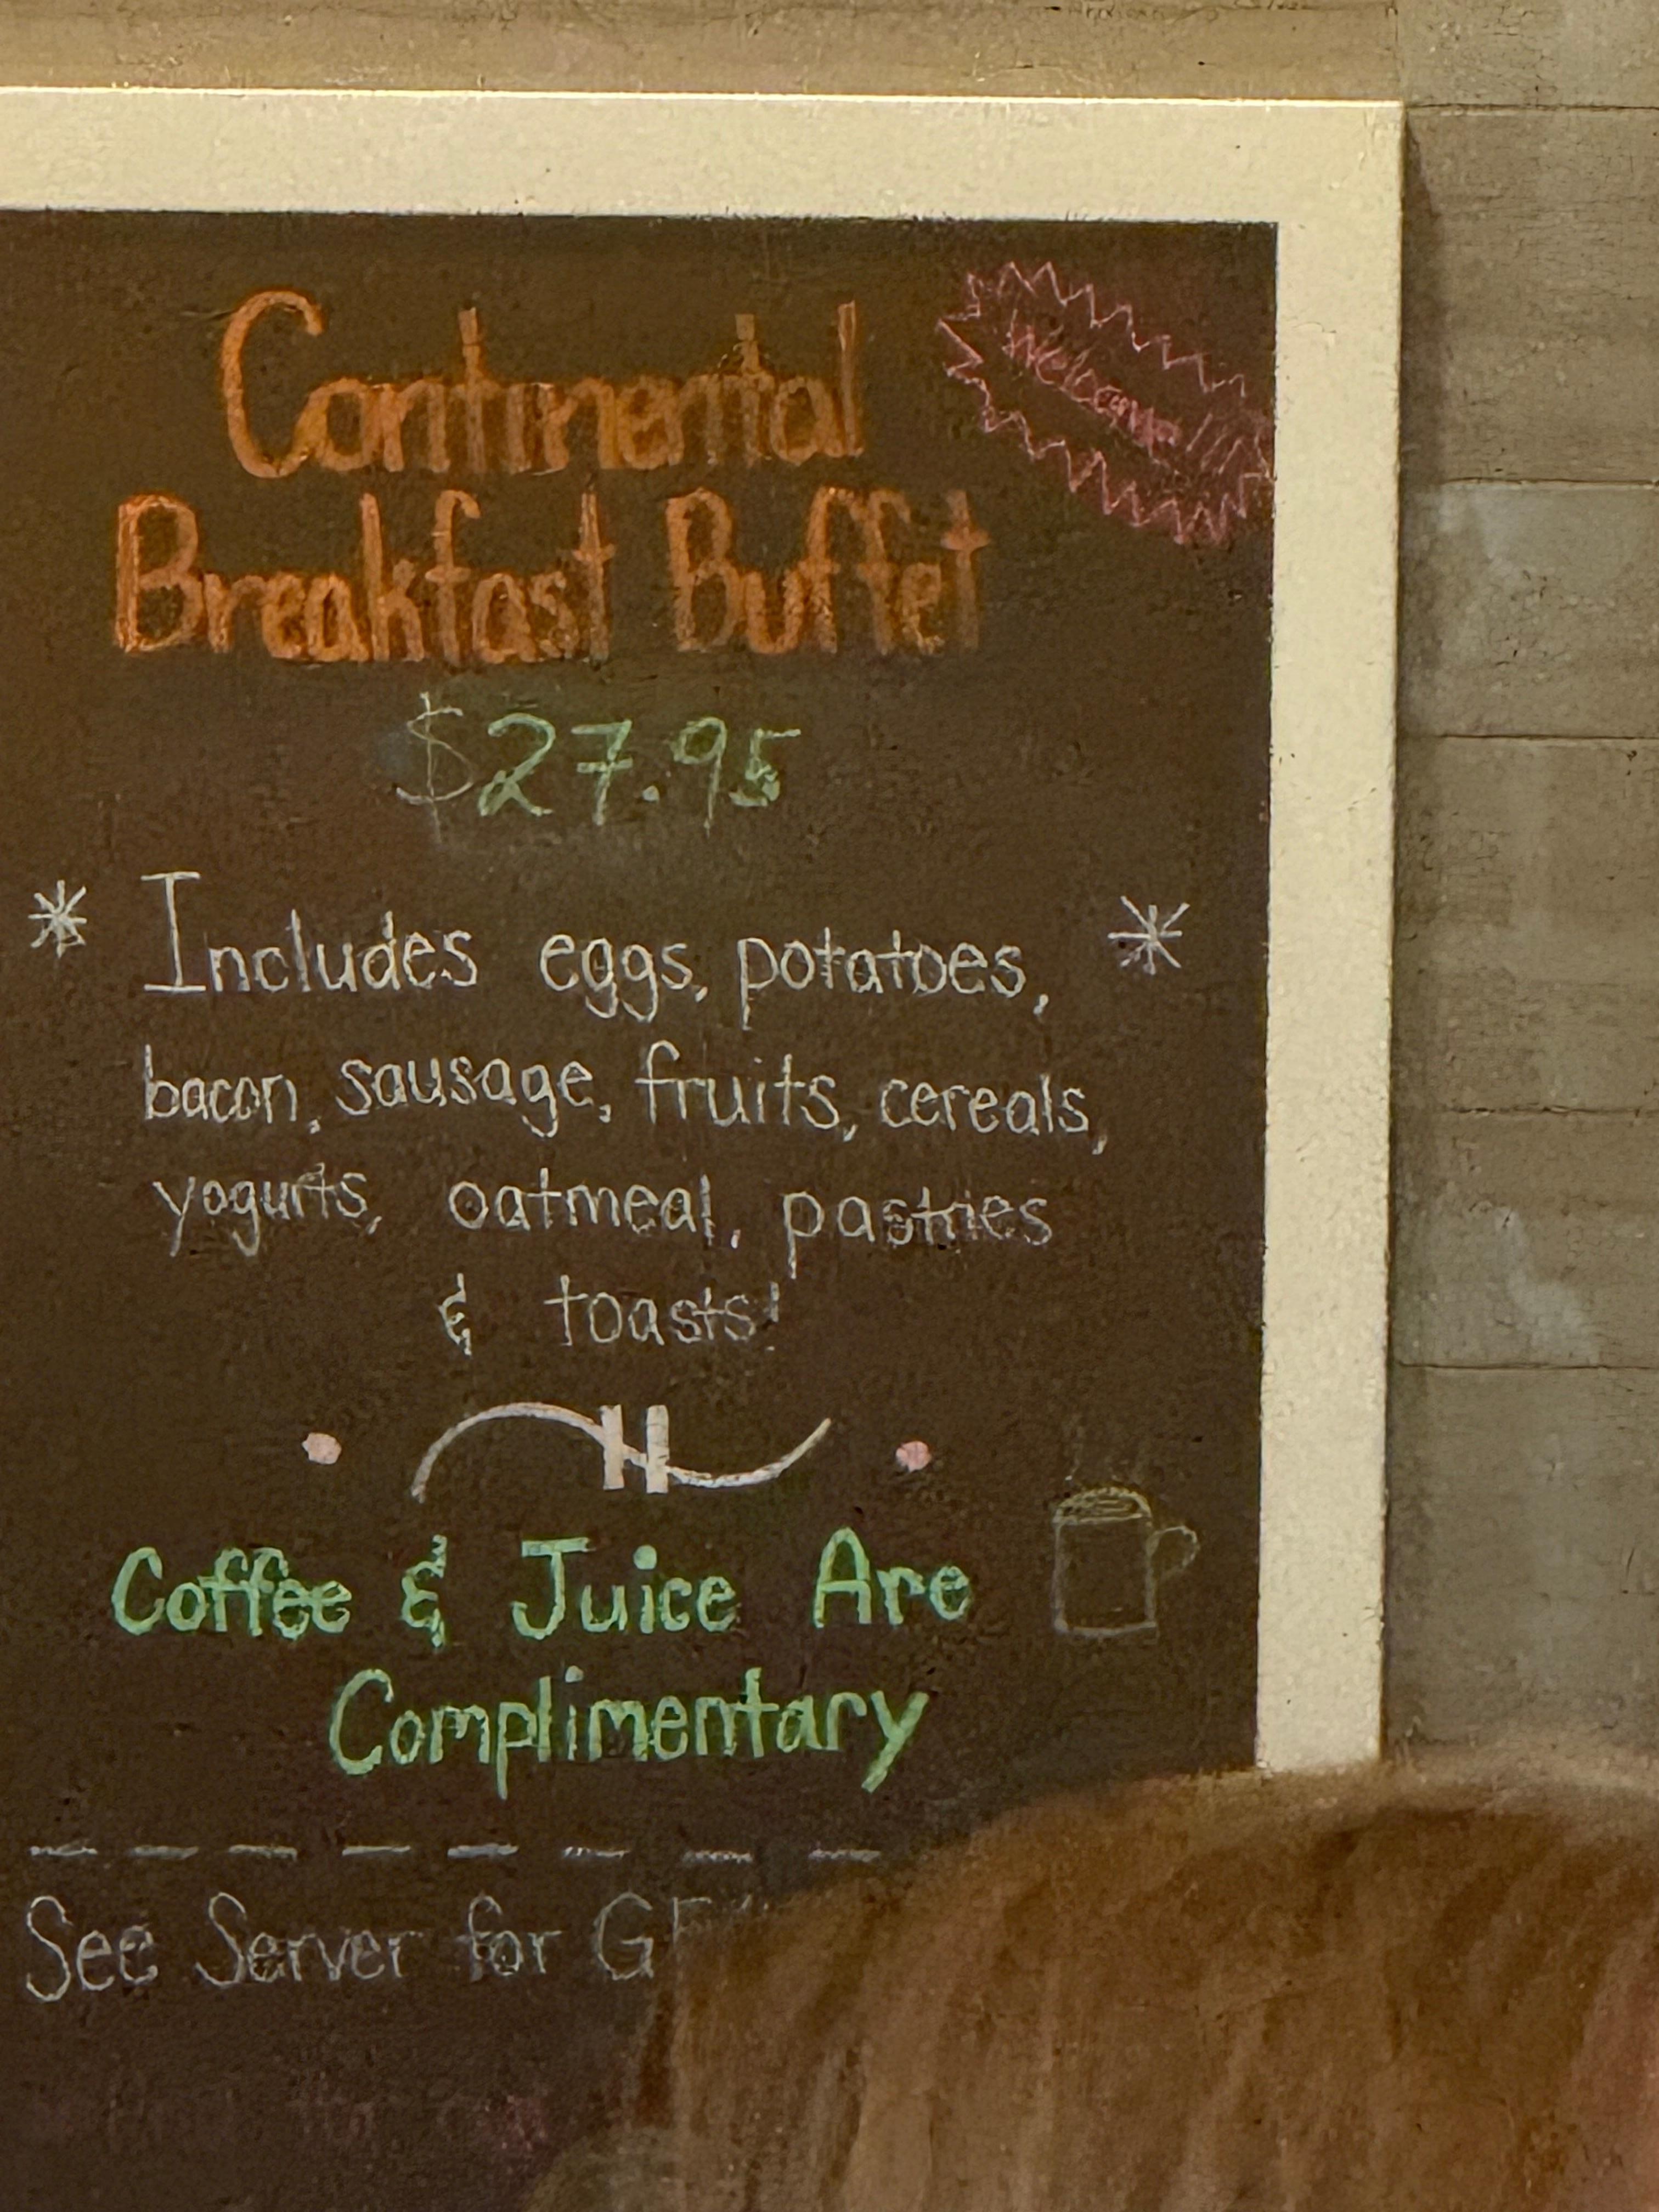 Continental
Welcome
Breakfast Buffet
$27.95
* Includes eggs, potatoes, *
bacon, sausage, fruits, cereals,
yogurts, oatmeal, pastries
& toasts!
Coffee & Juice Are
Complimentary
See Server for GF